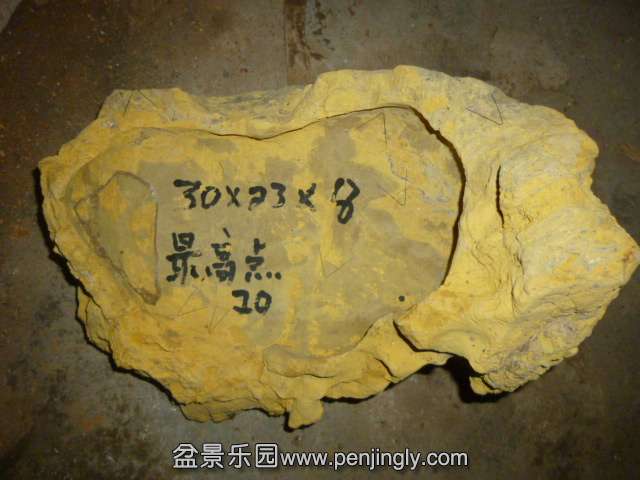 30×23×8
最高点
20
盆景乐园www.penjingly.com